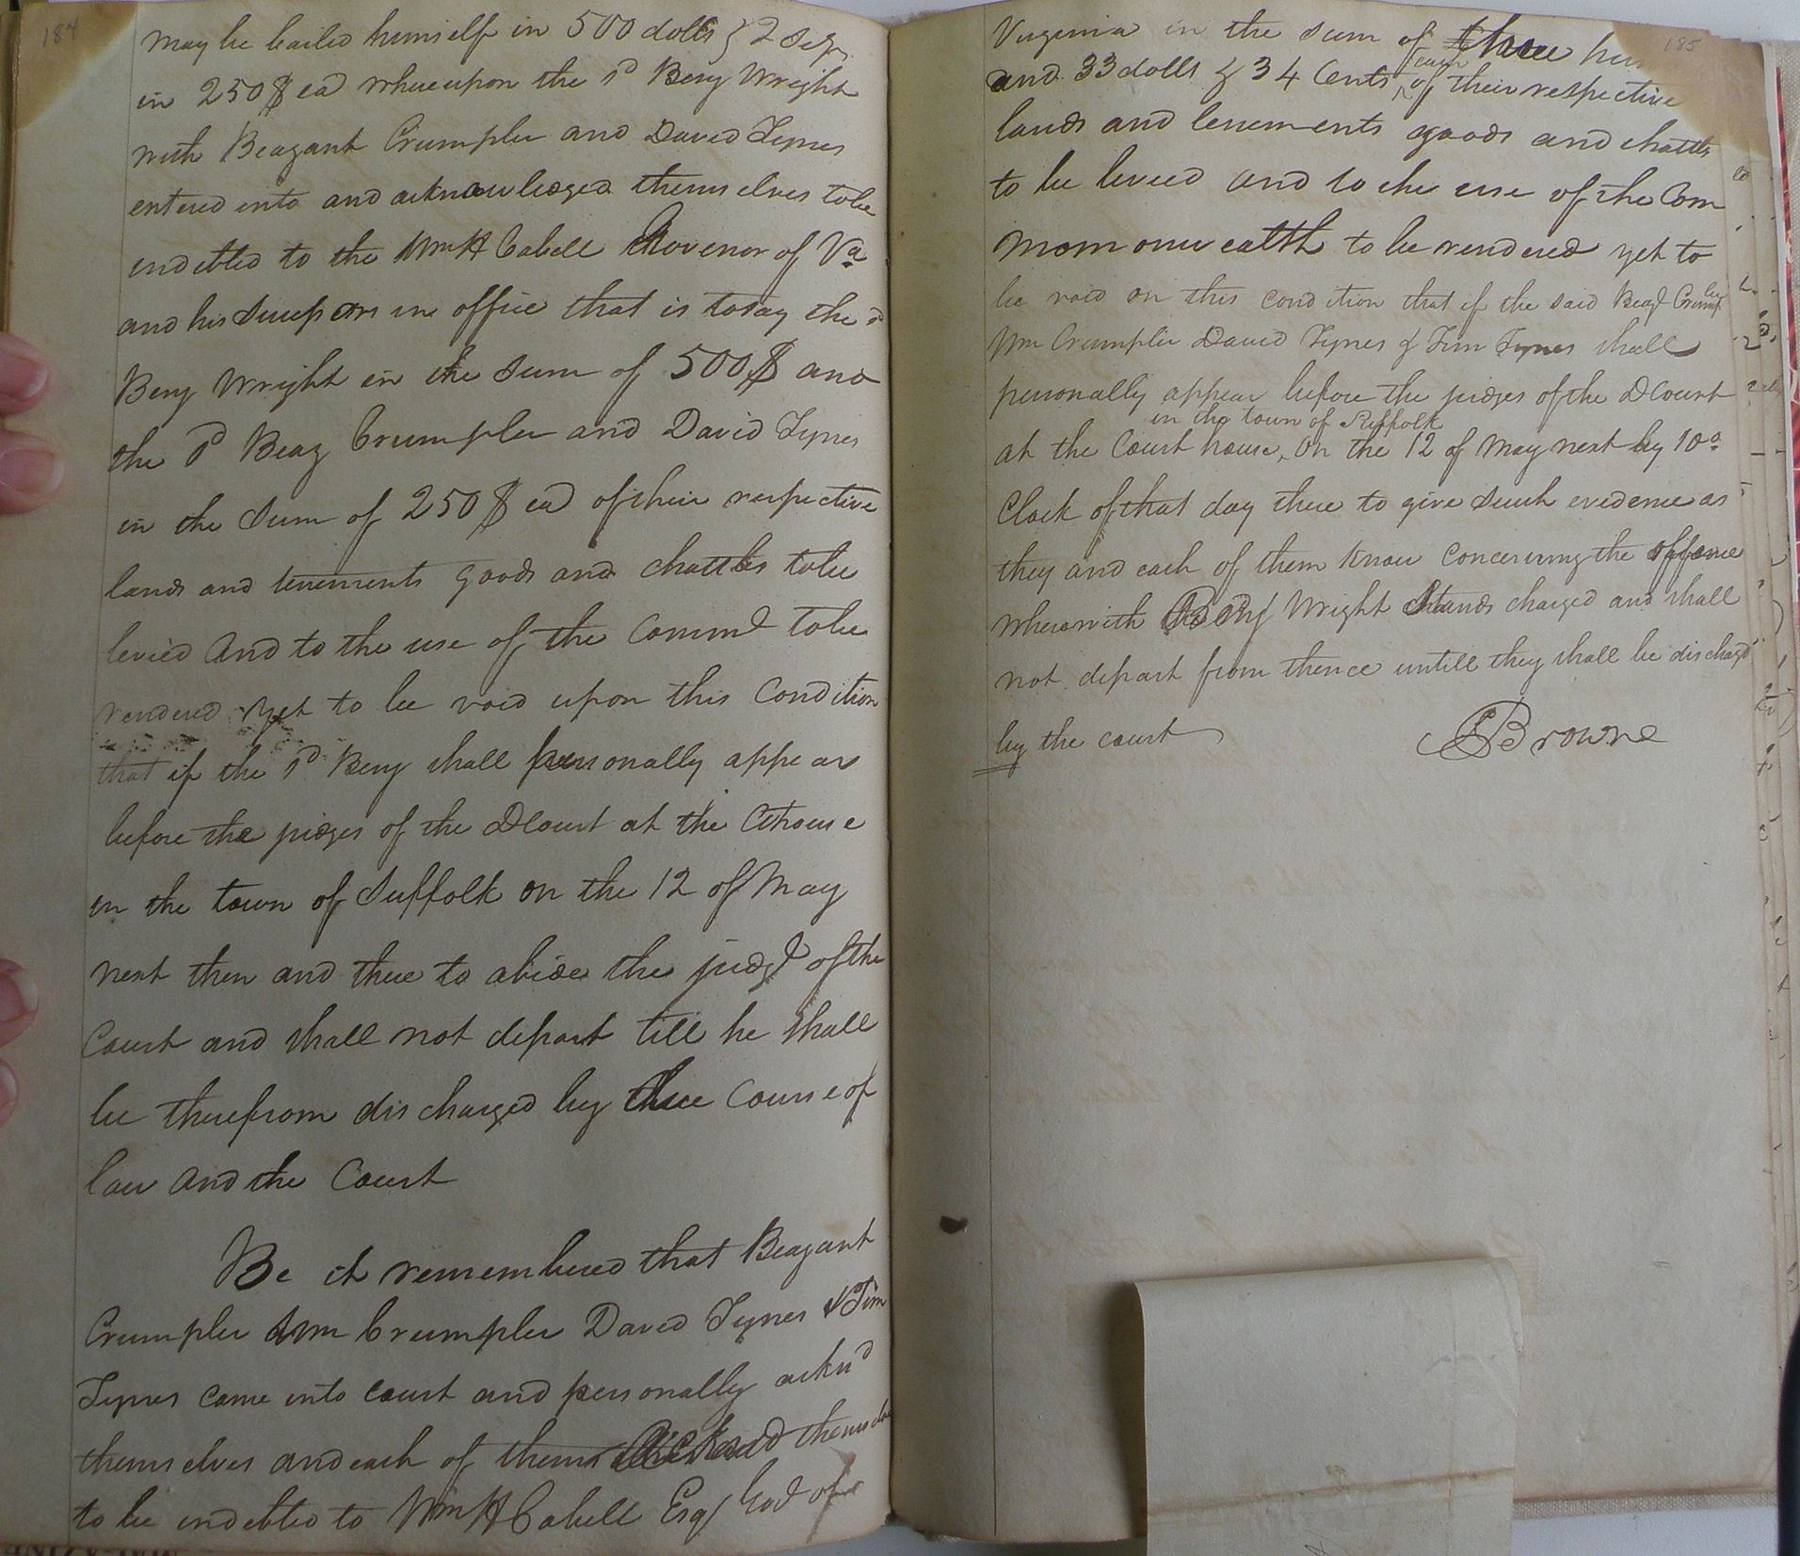 184
may be bailed himself in 500 dolls & 2 Se
in 250$ ea whereupon the sd Beny Wright
with Beazant Crumpler and David Tynes
entered into and acknowledged themselves to be
indebted to the Wm H Cabell Govenor of Va
and his Successors in office that is to say the sd
Beny Wright in the Sum of 500$ and
the sd Beaz Crumpler and David Tynes
in the Sum of 250$ ea of their respective
lands and tenements goods and chattles to be
levied and to the use of the Commd to be
rendered yet to be void upon this Condition
that if the sd Beny shall personally appear
before the judges of the DCourt at the Cthouse
in the town of Suffolk on the 12 of May
next then and there to abide the judgt of the
Court and shall not depart till he shall
be therefrom discharged by due Course of
law and the Court
Be it remembered that Beazant
Crumpler Wm Crumpler David Tynes & Tim
Tynes came into court and personally acknd
themselves and each of them themselves
to be indebted to Wm H Cabell Esqr Govr of
185
Virginia in the sum of three
and 33 dolls & 34 Cents each of their respective
lands and tenements goods and chattles
to be levied and to the use of the Com
monwealth to be rendered yet to
be void on this condition that if the said Beazt Crumpler
Wm Crumpler David Tynes & Tim Tynes shall
personally appear before the judges of the DCourt
in the town of Suffolk
at the Court house, on the 12 of May next by 10 o
Clock of that day there to give such evidence as
they and each of them know concerning the offence
wherewith Beny Wright stands charged and shall
not depart from thence untill they shall be dischargd
by the court
Browne